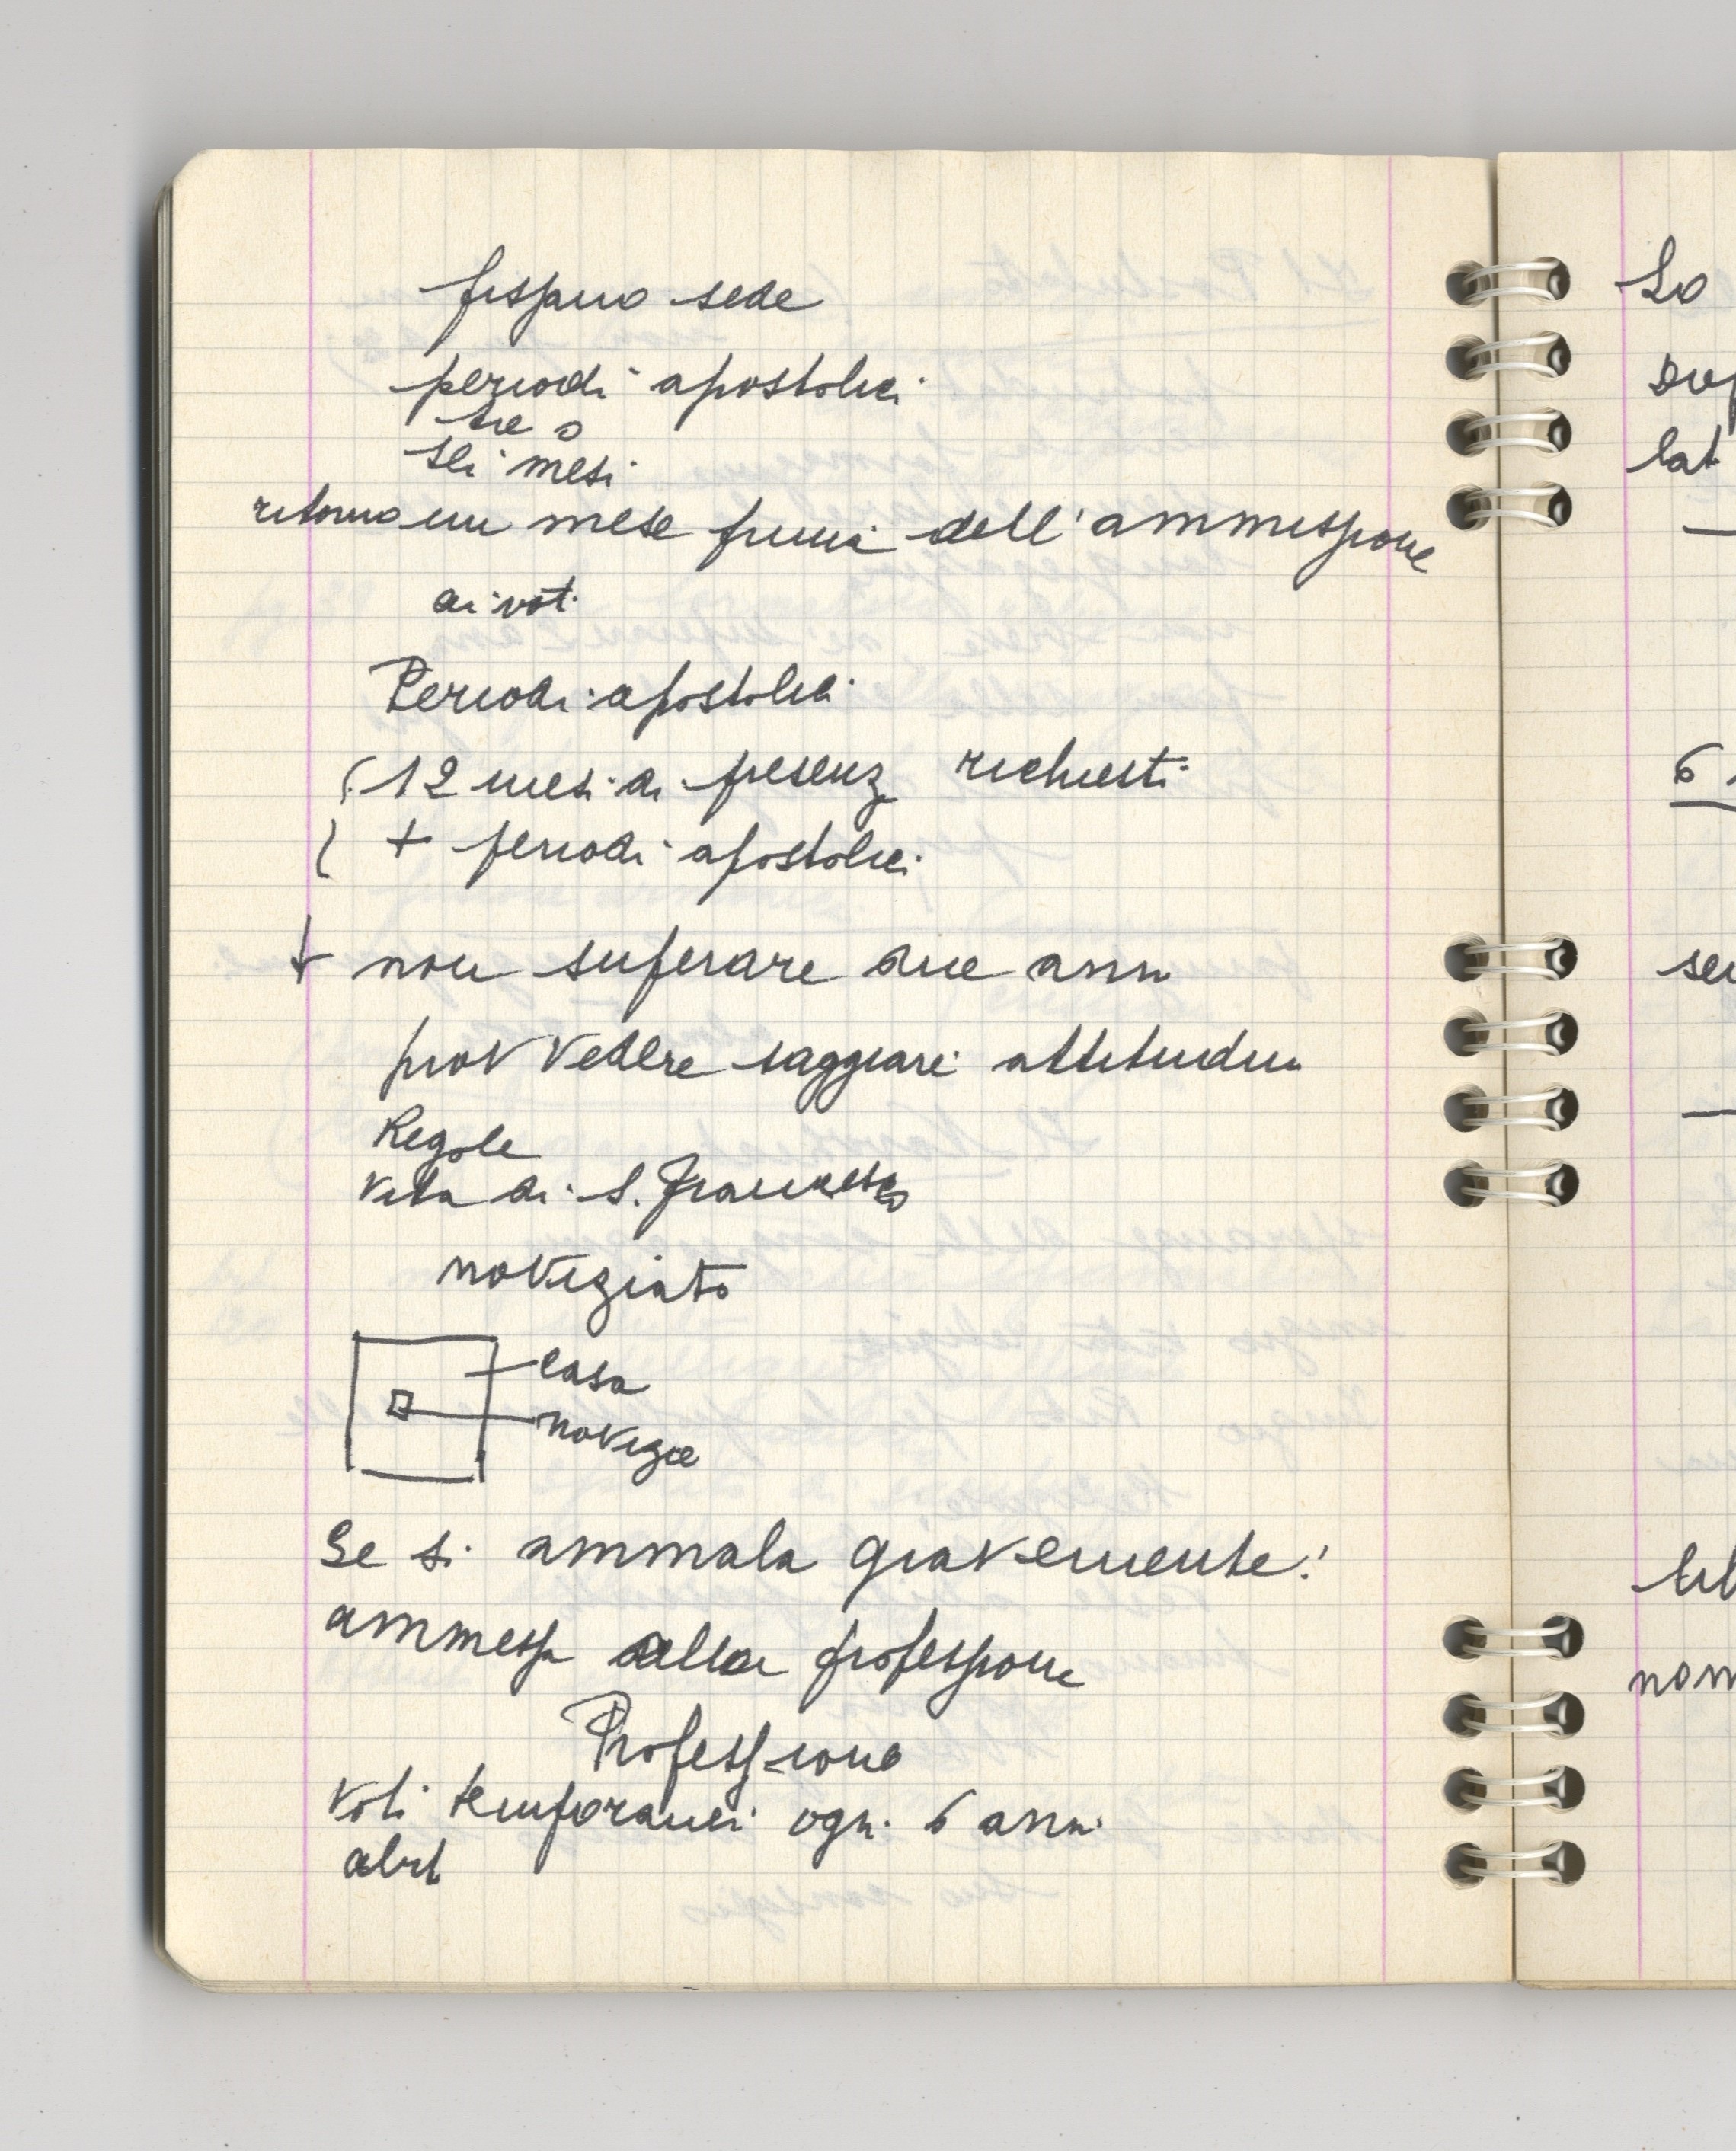 fissano sede
periodi apostolici
tre o
sei mesi
ritorno un mese prima dell'ammissione
ai voti
Periodi apostolici
(12 mesi di presenz richiesti
( + periodi apostolici
+ non superare due anni
provvedere saggiare attitudini
Regole
Vita di S. Francesco
noviziato
casa
novizie
Se si ammala gravemente!
ammessa alla professione
Professione
Voti temporanei ogni 6 anni
So
lat
6
nom